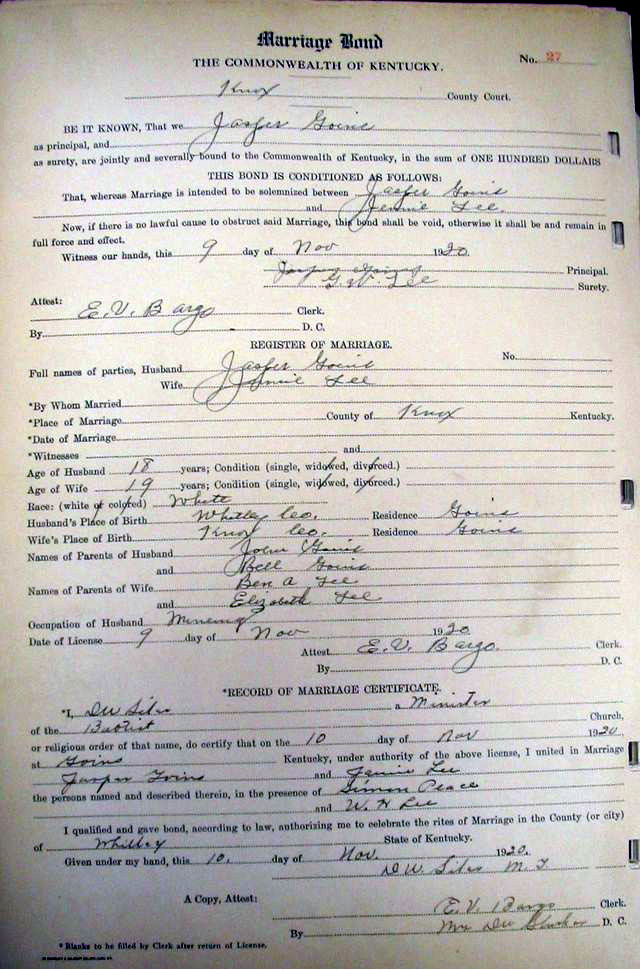 Marriage Bond
THE COMMONWEALTH OF KENTUCKY.
No. 27
Knox County Court.
BE IT KNOWN, That we Jasper Goins
as principal, and
as surety, are jointly and severally bound to the Commonwealth of Kentucky, in the sum of ONE HUNDRED DOLLARS
THIS BOND IS CONDITIONED AS FOLLOWS:
That, whereas Marriage is intended to be solemnized between Jasper Goins
and Jennie Lee.
Now, if there is no lawful cause to obstruct said Marriage, this bond shall be void, otherwise it shall be and remain in
full force and effect.
Witness our hands, this 9 day of Nov 1920.
Principal.
G.W. Lee Surety.
Attest: E.V. Bargo Clerk.
By D. C.
REGISTER OF MARRIAGE.
Full names of parties, Husband Jasper Goins No.
Wife Jennie Lee
*By Whom Married
*Place of Marriage County of Knox Kentucky.
*Date of Marriage
*Witnesses and
Age of Husband 18 years; Condition (single, widowed, divorced.)
Age of Wife 19 years; Condition (single, widowed, divorced.)
Race: (white or colored) White
Husband's Place of Birth Whitley Co. Residence Goins
Wife's Place of Birth Knox Co. Residence Goins
Names of Parents of Husband John Goins
and Bell Goins
Names of Parents of Wife Ben A Lee
and Elizabeth Lee
Occupation of Husband Mineing
Date of License 9 day of Nov 1920
Attest E.V. Bargo. Clerk.
By D. C.
*RECORD OF MARRIAGE CERTIFICATE.
*I, DW Siler a Minister
of the Baptist Church,
or religious order of that name, do certify that on the 10 day of Nov 1920
at Goins Kentucky, under authority of the above license, I united in Marriage
Jasper Goins and Jennie Lee
the persons named and described therein, in the presence of Simon Peace
and W. H Lee
I qualified and gave bond, according to law, authorizing me to celebrate the rites of Marriage in the County (or city)
of Whitley State of Kentucky.
Given under my hand, this 10. day of Nov. 1920.
DW Siler M. G.
A Copy, Attest: E.V. Bargo Clerk.
By Mrs D. C.
*Blanks to be filled by Clerk after return of License.